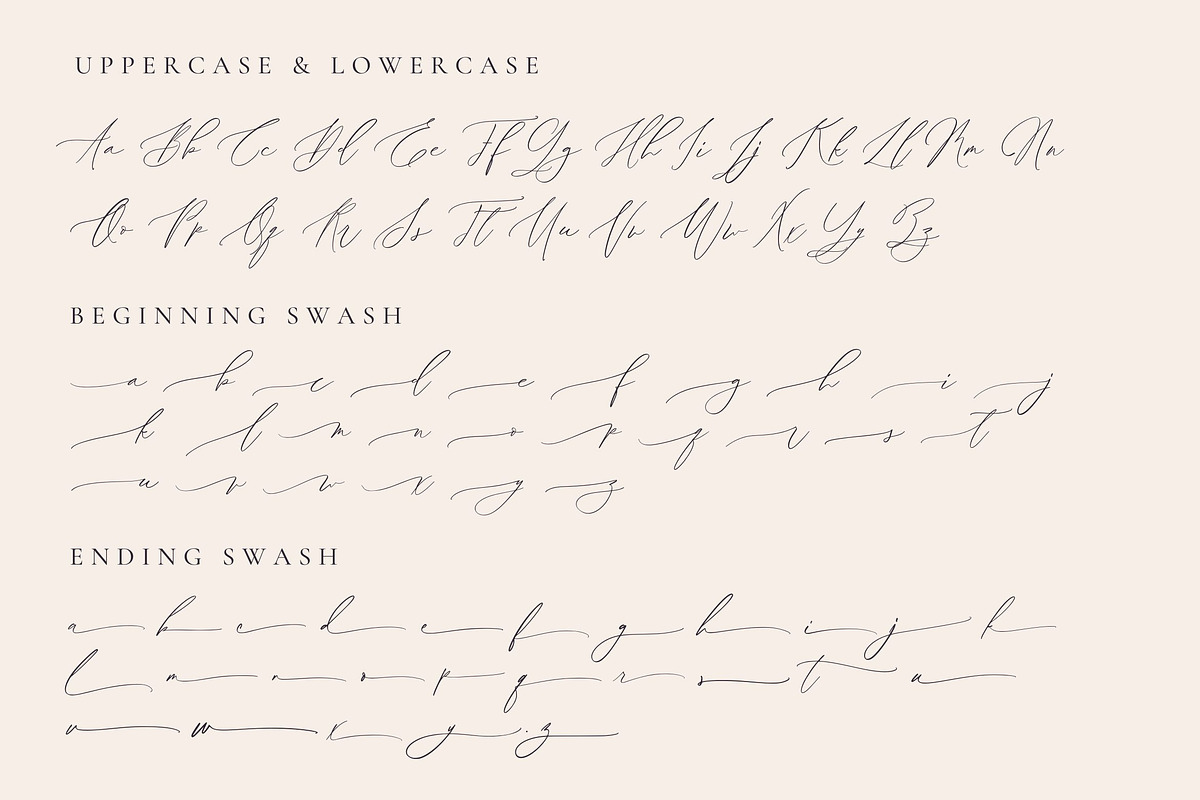 UPPERCASE & LOWERCASE
Aa Bb Cc Dd Ee Ff Gg Hh Ii Jj Kk Ll Mm Nn
Oo Pp Qq Rr Ss Tt Uu Vv Ww Xx Yy Zz
BEGINNING SWASH
a b c d e f g h i j
k l m n o p q r s t
u v w x y z
ENDING SWASH
a b c d e f g h i j k
l m n o p q r s t u
v w x y . z